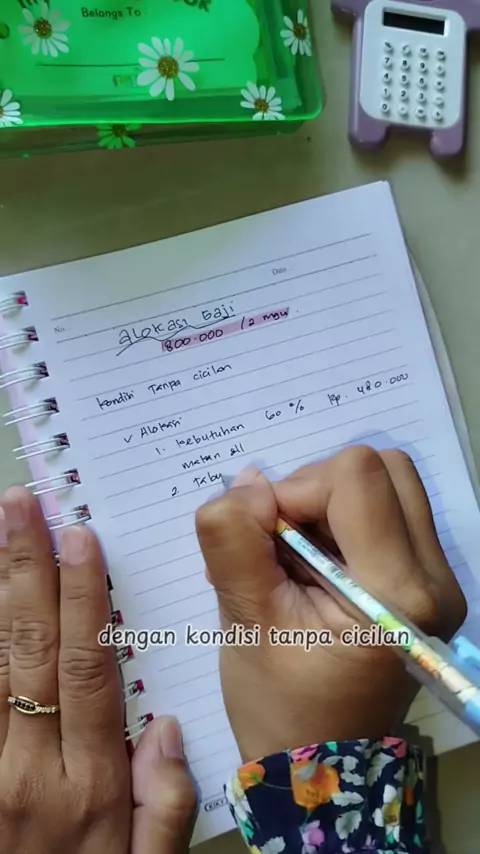 Belongs To :
No.
Date.
Alokasi Gaji
800.000 / 2 mgu.
kondisi Tanpa cicilan
√ Alokasi
1. kebutuhan 60% Rp. 480.000
makan dll
2. Tabu
dengan kondisi tanpa cicilan